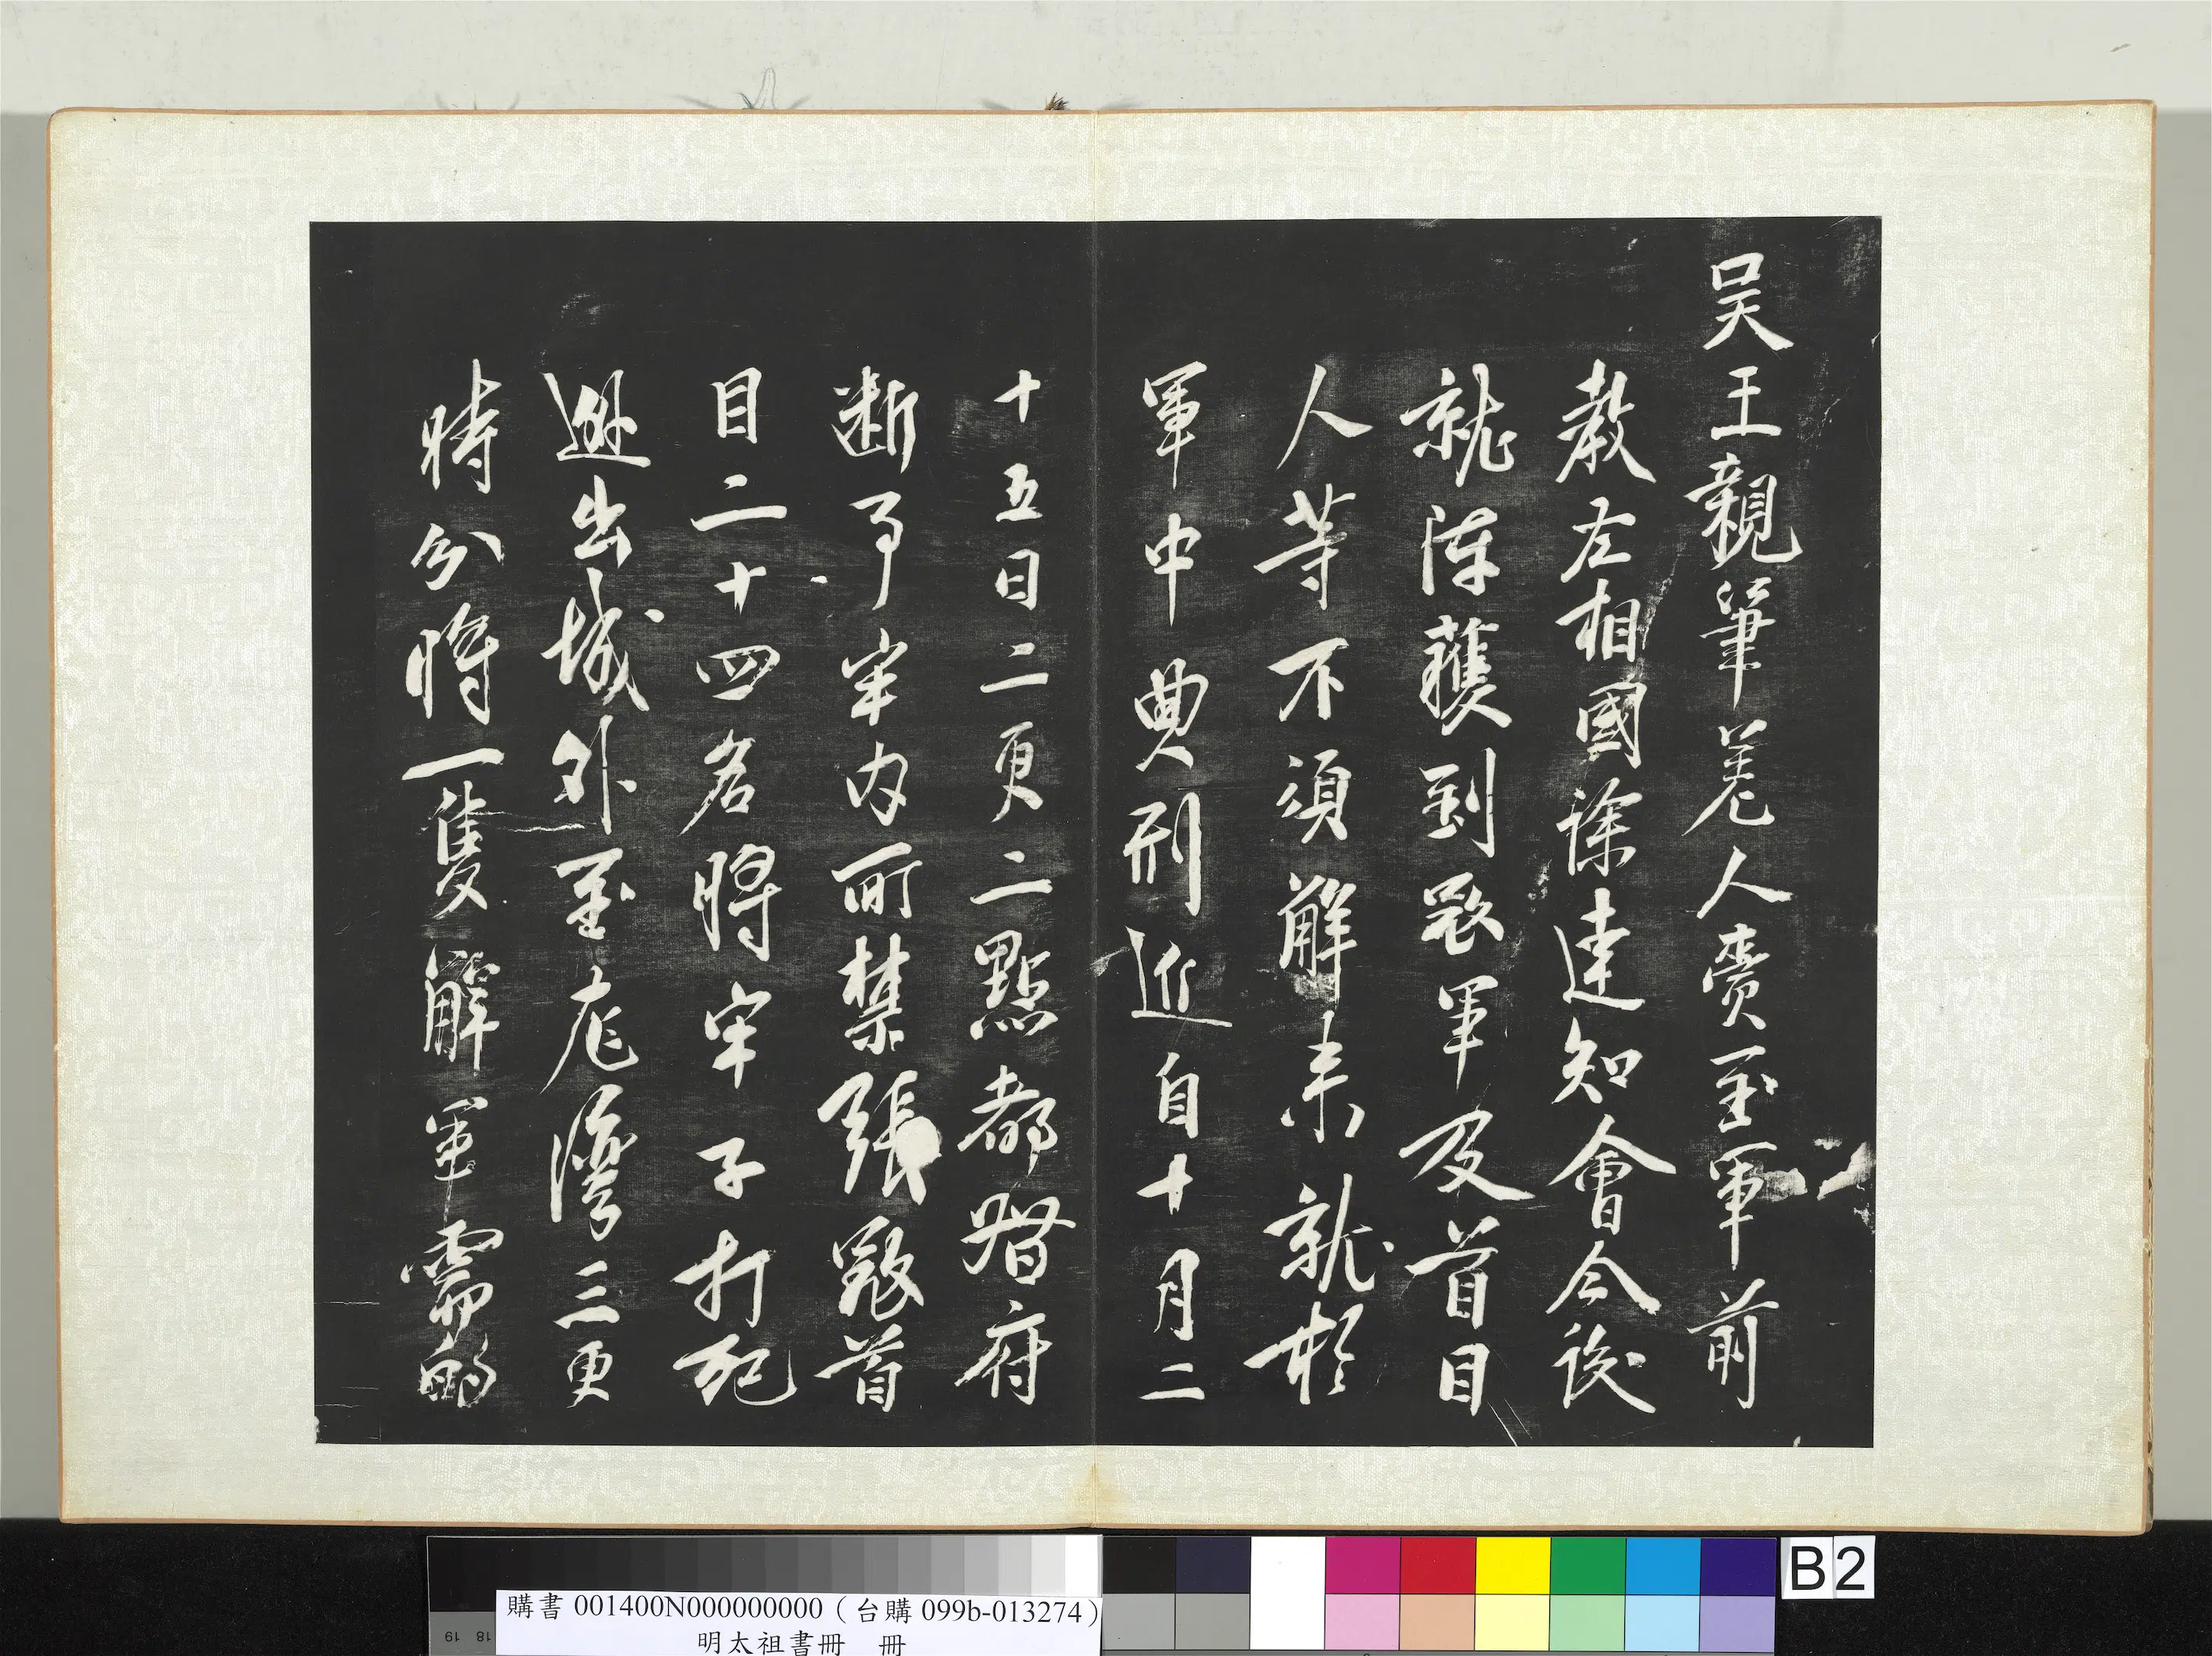 吴王親筆差人賫至軍前
教左相國徐達知會今後
就陣獲到寇軍及首目
人等不須解來就於
軍中典刑近自十月二
十五日二更二點都督府
断事牢内所禁張寇首
目二十四名將牢子打死
逊出城外至龙灣三更
時分將一隻解軍需的
購書 001400N000000000（台購 099b-013274）
明太祖書冊　冊
B2
18
19